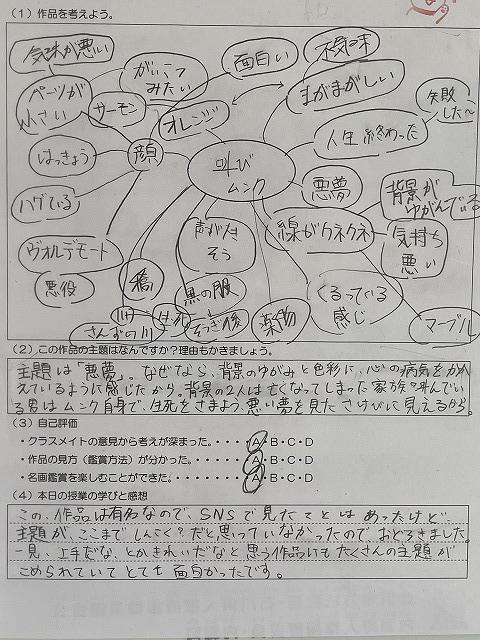 (1) 作品を考えよう。
気味が悪い
がいこつみたい
面白い
不気味
まがまがしい
パーツが小さい
サーモン
オレンジ
失敗した〜
人生終わった
はっきょう
顔
叫び
ムンク
悪夢
背景がゆがんでいる
ハゲている
声がたそう
線がクネクネ
気持ち悪い
ヴォルデモート
悪役
橋
黒の服
くるっている感じ
川
さんずの川
生死
そうぎ後
薬物
マーブル
(2) この作品の主題はなんですか？理由もかきましょう。
主題は「悪夢」。なぜなら、背景のゆがみと色彩に、心の病気をかか
えているように感じたから。背景の2人は亡くなってしまった家族で叫んでい
る男はムンク自身で、生死をさまよう、悪い夢を見たさけびに見えるから。
(3) 自己評価
・クラスメイトの意見から考えが深まった。・・・・A・B・C・D
・作品の見方（鑑賞方法）が分かった。・・・・・・A・B・C・D
・名画鑑賞を楽しむことができた。・・・・・・・・A・B・C・D
(4) 本日の授業の学びと感想
この、作品は有名なので、SNSで見たことはあったけど
主題が、ここまでしんこく？だと思っていなかったので、おどろきました。
一見、上手だな、とかきれいだなと思う作品にもたくさんの主題が
こめられていてとても面白かったです。